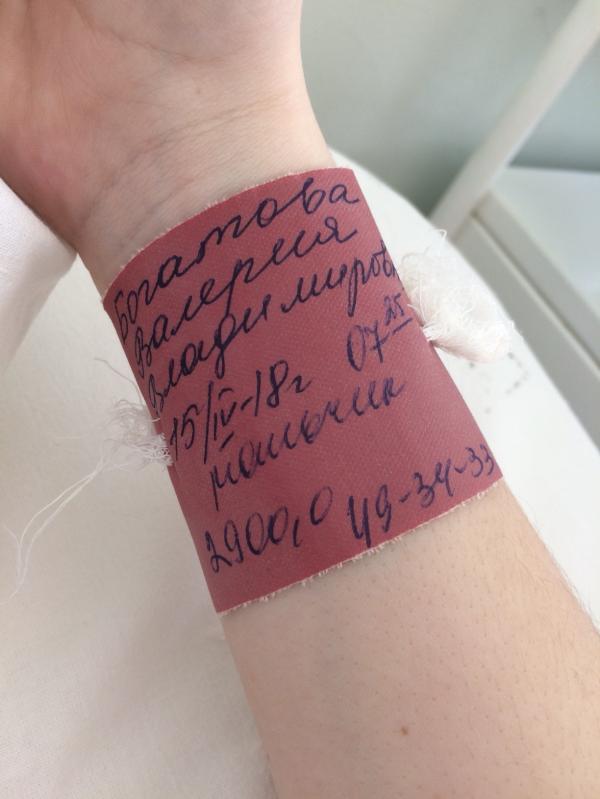 Богатова
Валерия
Владимиров
15/IV-18г 07 25
мальчик
2900,0 49-34-33